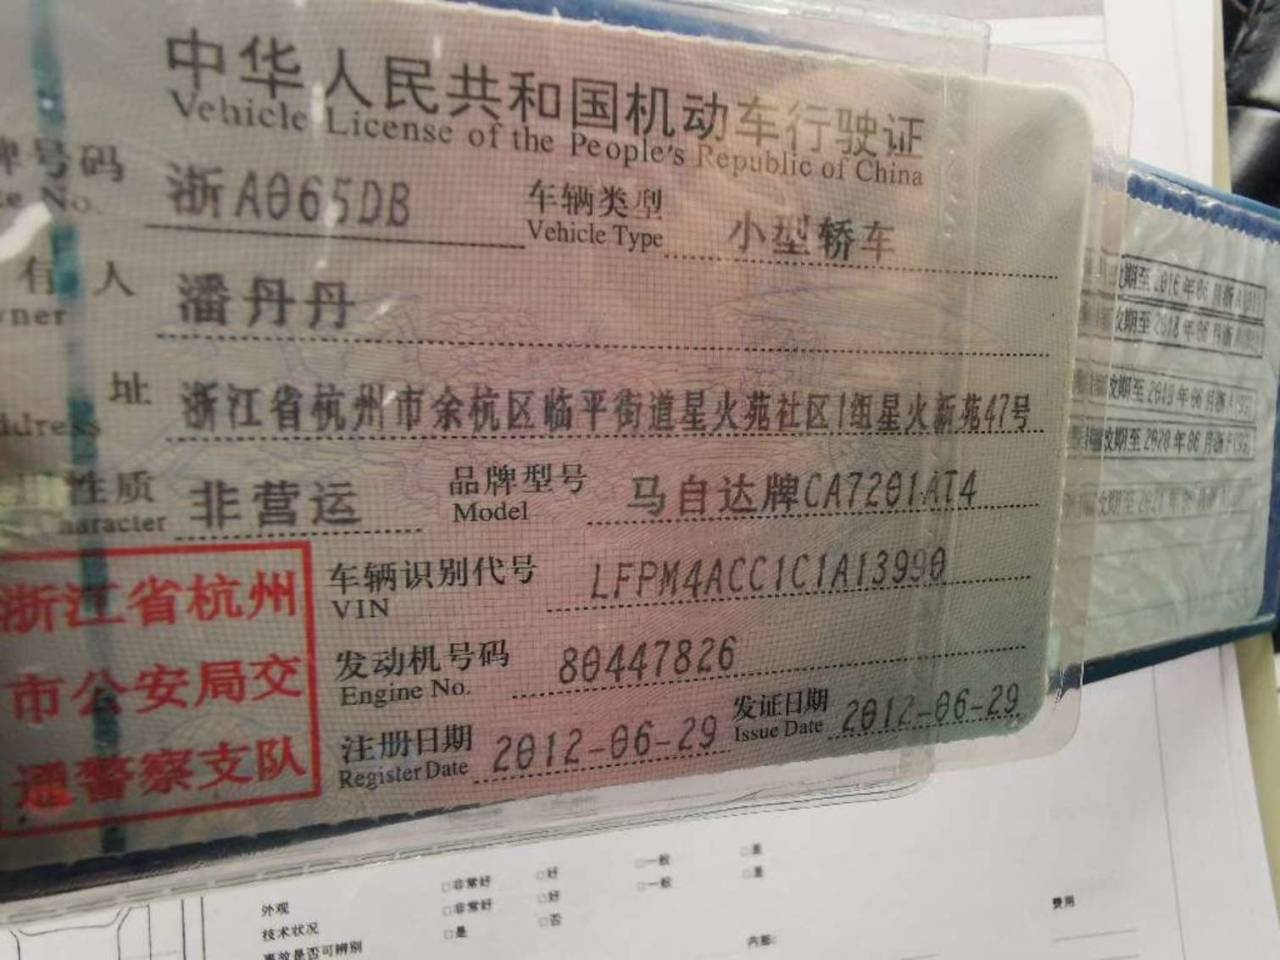 中华人民共和国机动车行驶证
Vehicle License of the People's Republic of China
牌号码 浙A065DB 车辆类型 小型轿车
te No. Vehicle Type
有人 潘丹丹
wner
址 浙江省杭州市余杭区临平街道星火苑社区1组星火新苑47号
ddress
性质 非营运 品牌型号 马自达牌CA7201AT4
haracter Model
浙江省杭州
市公安局交
通警察支队
车辆识别代号 LFPM4ACC1C1A13990
VIN
发动机号码 80447826
Engine No.
注册日期 2012-06-29 发证日期 2012-06-29
Register Date Issue Date
期至2016年06月浙A
效期至2018年06月浙A
效期至2019年06月浙
效期至2020年06月浙
□非常好 □好 □一般 □差
外观 □非常好 □好 □一般 □差
技术状况 □是 □否
事故是否可辨别
内部:
费用